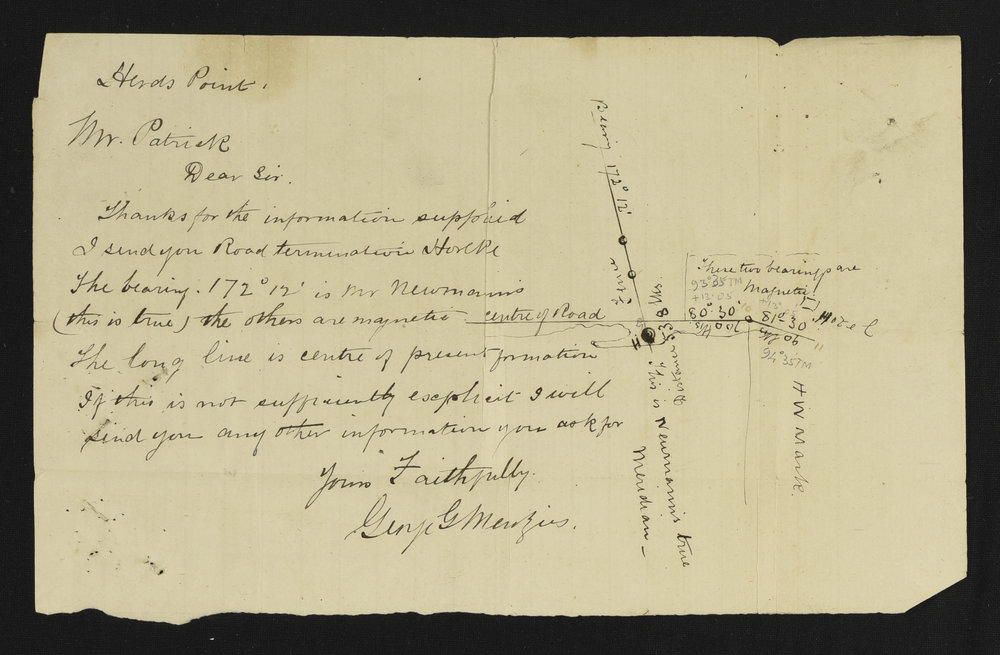 Herds Point.
Mr. Patrick
Dear Sir.
Thanks for the information supplied
I send you Road termination
The bearing. 172° 12' is Mr Newman's
(this is true) the others are magnetic centre of Road
The long line is centre of present formation
If this is not sufficiently explicit I will
send you any other information you ask for
Yours Faithfully.
George G Menzies.
Bearing 172° 12'
Fence
Distance 53 8 lks
This is Newman's true
Meridian -
These two bearings are
Magnetic
93°35'TM
+13.05
80° 30'
700 lks
81° 30'
90 lks
94°35'TM
Hotel
H W Mark.